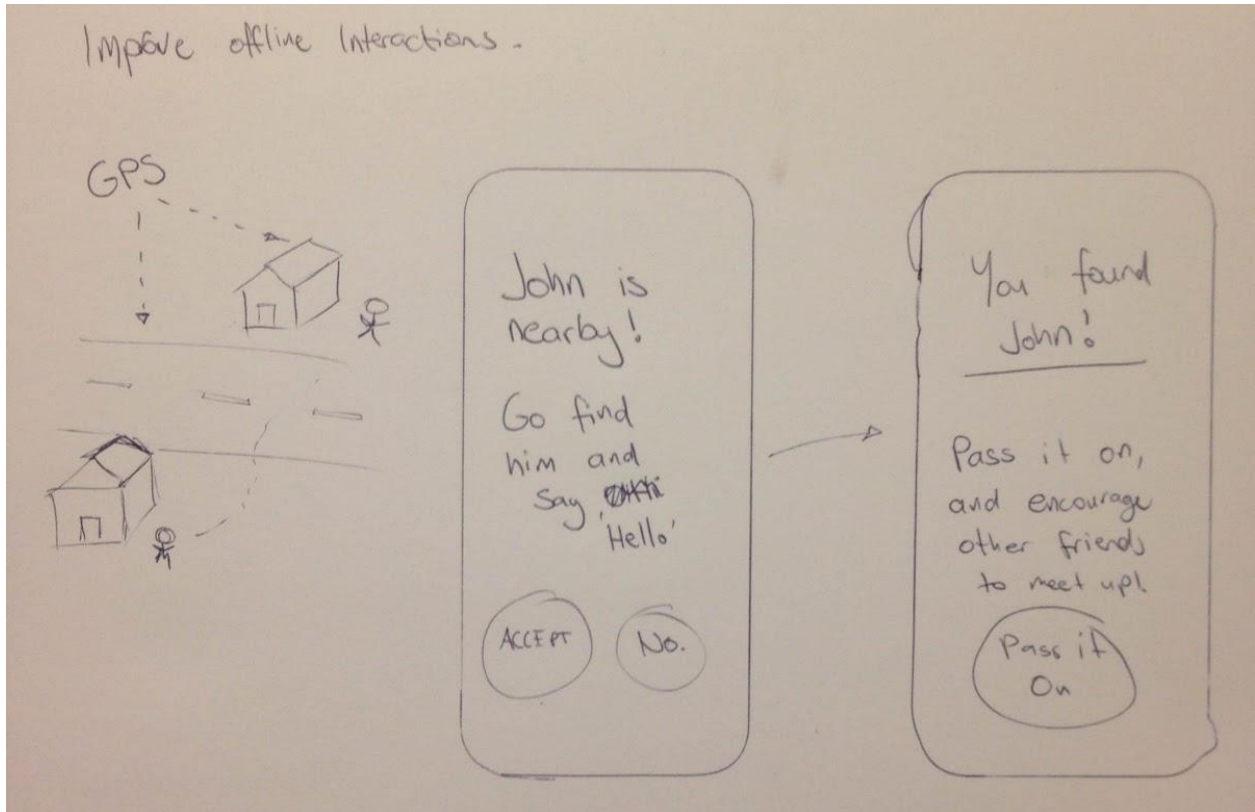 Impove offline Interactions.
GPS
John is
nearby!
Go find
him and
say
'Hello'
ACCEPT
No.
You found
John!
Pass it on,
and encourage
other friends
to meet up!
Pass it
On